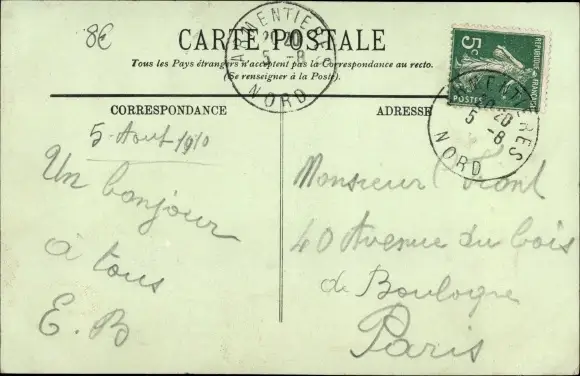 8€
CARTE POSTALE
Tous les Pays étrangers n'acceptent pas la Correspondance au recto.
(Se renseigner à la Poste).
ARMENTIERES
20 20
5 -8
NORD
5c
REPUBLIQUE FRANÇAISE
POSTES
ARMENTIERES
20
5 -8
NORD
CORRESPONDANCE
5. Aout 1910
Un bonjour
à tous
E. B
ADRESSE
Monsieur
40 Avenue du bois
de Boulogne
Paris